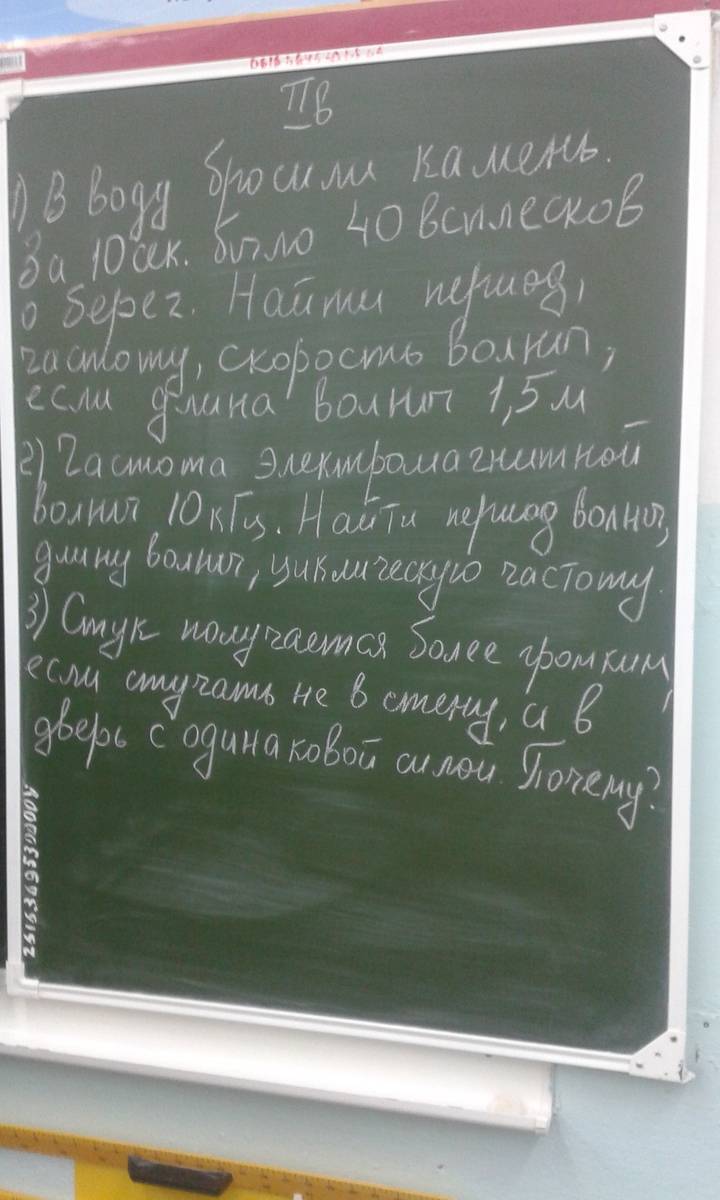 IIв
1) В воду бросили камень.
За 10 сек. было 40 всплесков
о берег. Найти период,
частоту, скорость волны,
если длина волны 1,5 м
2) Частота электромагнитной
волны 10 кГц. Найти период волны,
длину волны, циклическую частоту.
3) Стук получается более громким,
если стучать не в стену, а в
дверь с одинаковой силой. Почему?